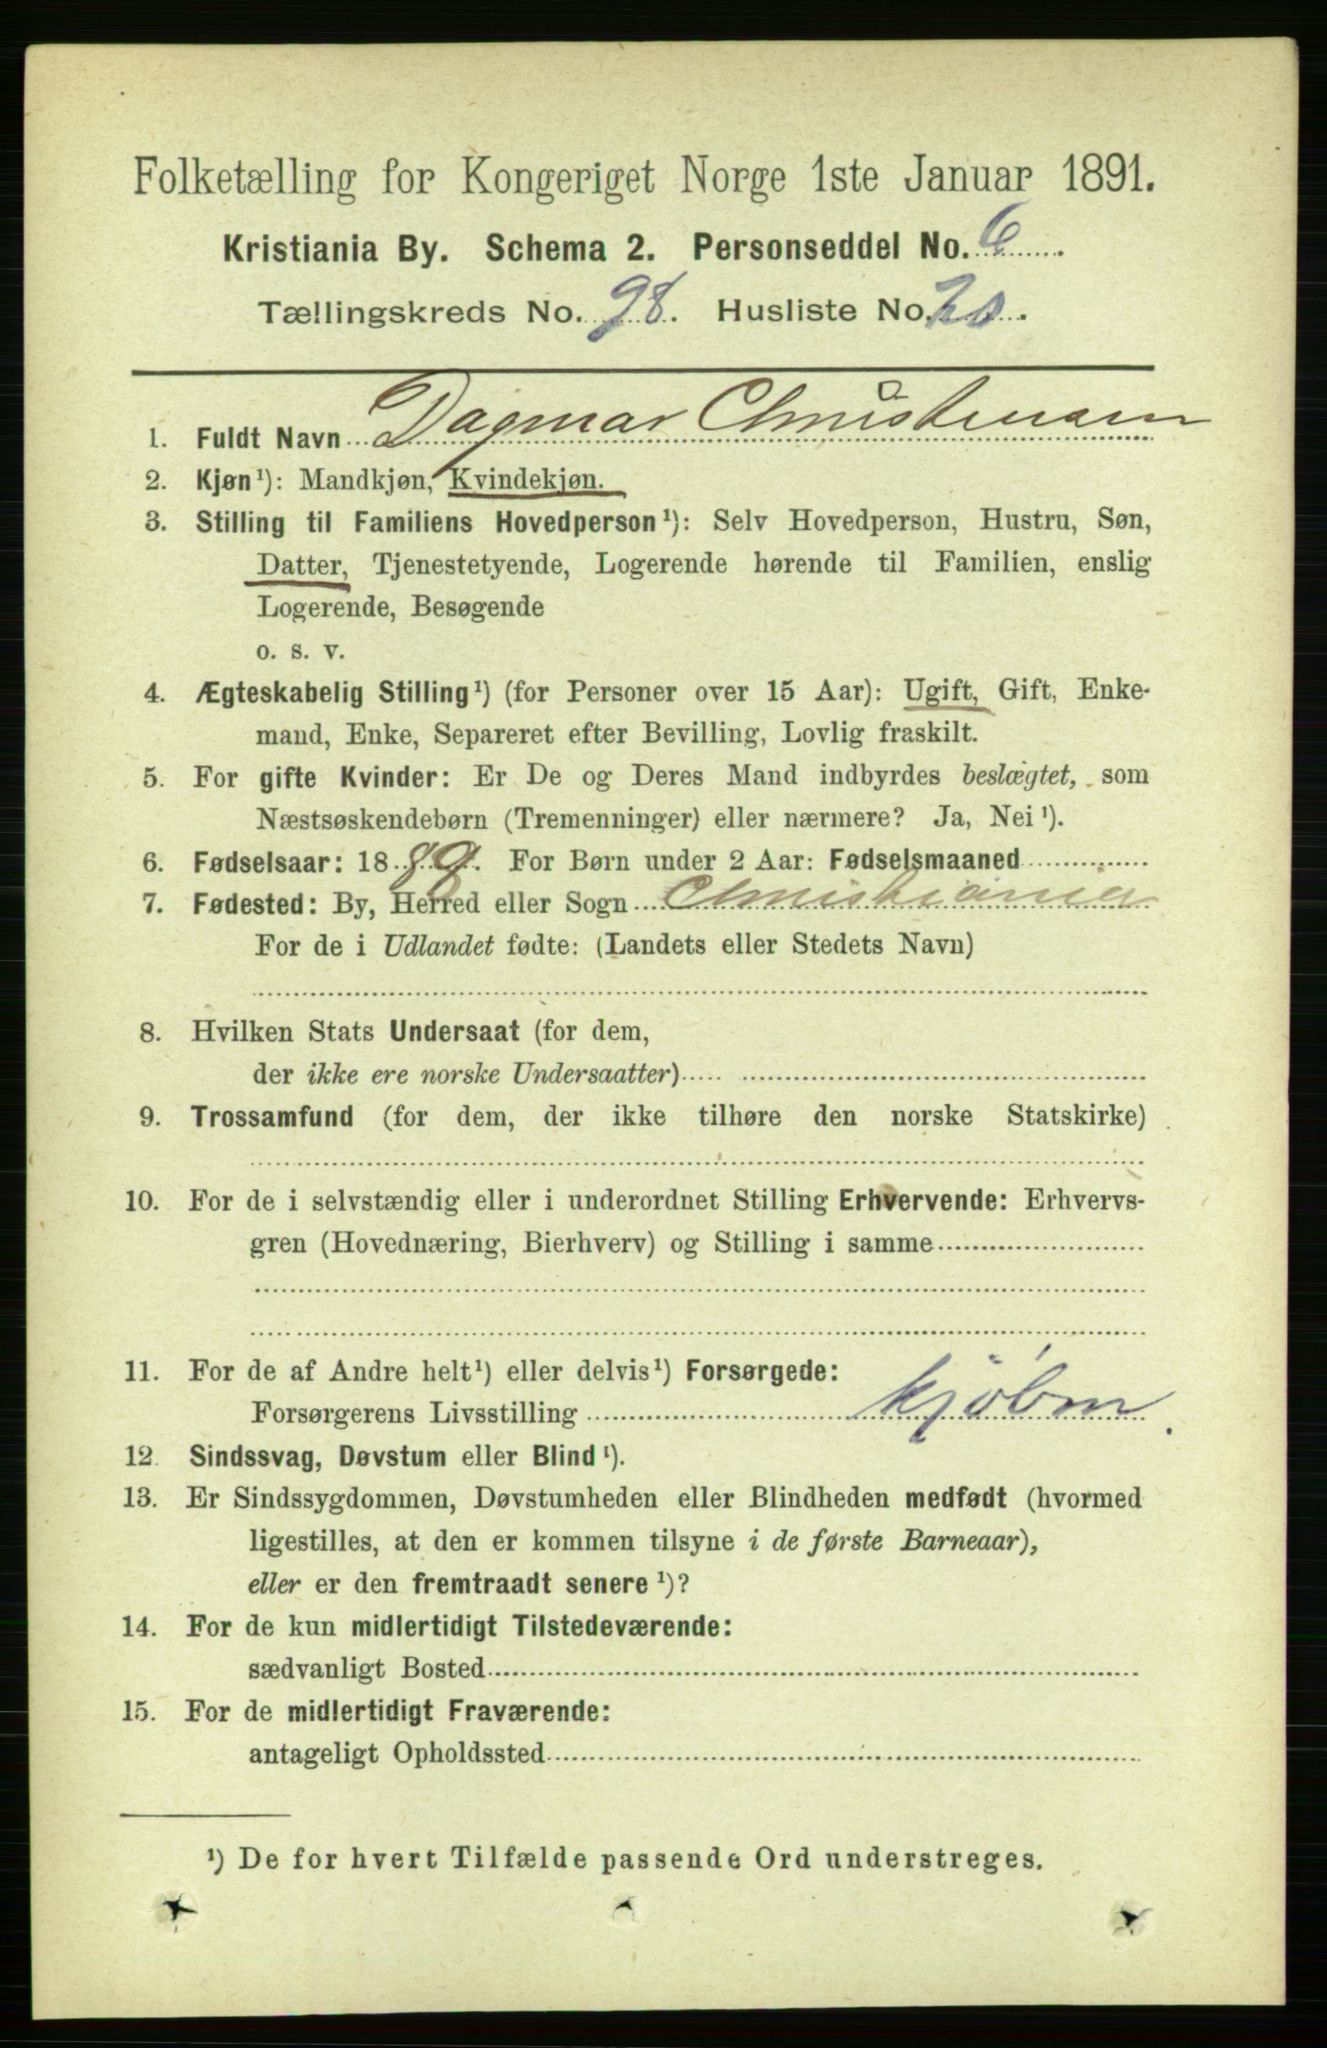 Folketælling for Kongeriget Norge 1ste Januar 1891.
Kristiania By. Schema 2. Personseddel No. 6
Tællingskreds No. 98. Husliste No. 20.
1. Fuldt Navn Dagmar Christensen
2. Kjøn¹): Mandkjøn, Kvindekjøn.
3. Stilling til Familiens Hovedperson¹): Selv Hovedperson, Hustru, Søn,
Datter, Tjenestetyende, Logerende hørende til Familien, enslig
Logerende, Besøgende
o. s. v.
4. Ægteskabelig Stilling¹) (for Personer over 15 Aar): Ugift, Gift, Enke-
mand, Enke, Separeret efter Bevilling, Lovlig fraskilt.
5. For gifte Kvinder: Er De og Deres Mand indbyrdes beslægtet, som
Næstsøskendebørn (Tremenninger) eller nærmere? Ja, Nei¹).
6. Fødselsaar: 1889. For Børn under 2 Aar: Fødselsmaaned
7. Fødested: By, Herred eller Sogn Christiania
For de i Udlandet fødte: (Landets eller Stedets Navn)
8. Hvilken Stats Undersaat (for dem,
der ikke ere norske Undersaatter)
9. Trossamfund (for dem, der ikke tilhøre den norske Statskirke)
10. For de i selvstændig eller i underordnet Stilling Erhvervende: Erhvervs-
gren (Hovednæring, Bierhverv) og Stilling i samme
11. For de af Andre helt¹) eller delvis¹) Forsørgede:
Forsørgerens Livsstilling kjøbm.
12. Sindssvag, Døvstum eller Blind¹).
13. Er Sindssygdommen, Døvstumheden eller Blindheden medfødt (hvormed
ligestilles, at den er kommen tilsyne i de første Barneaar),
eller er den fremtraadt senere¹)?
14. For de kun midlertidigt Tilstedeværende:
sædvanligt Bosted
15. For de midlertidigt Fraværende:
antageligt Opholdssted
¹) De for hvert Tilfælde passende Ord understreges.